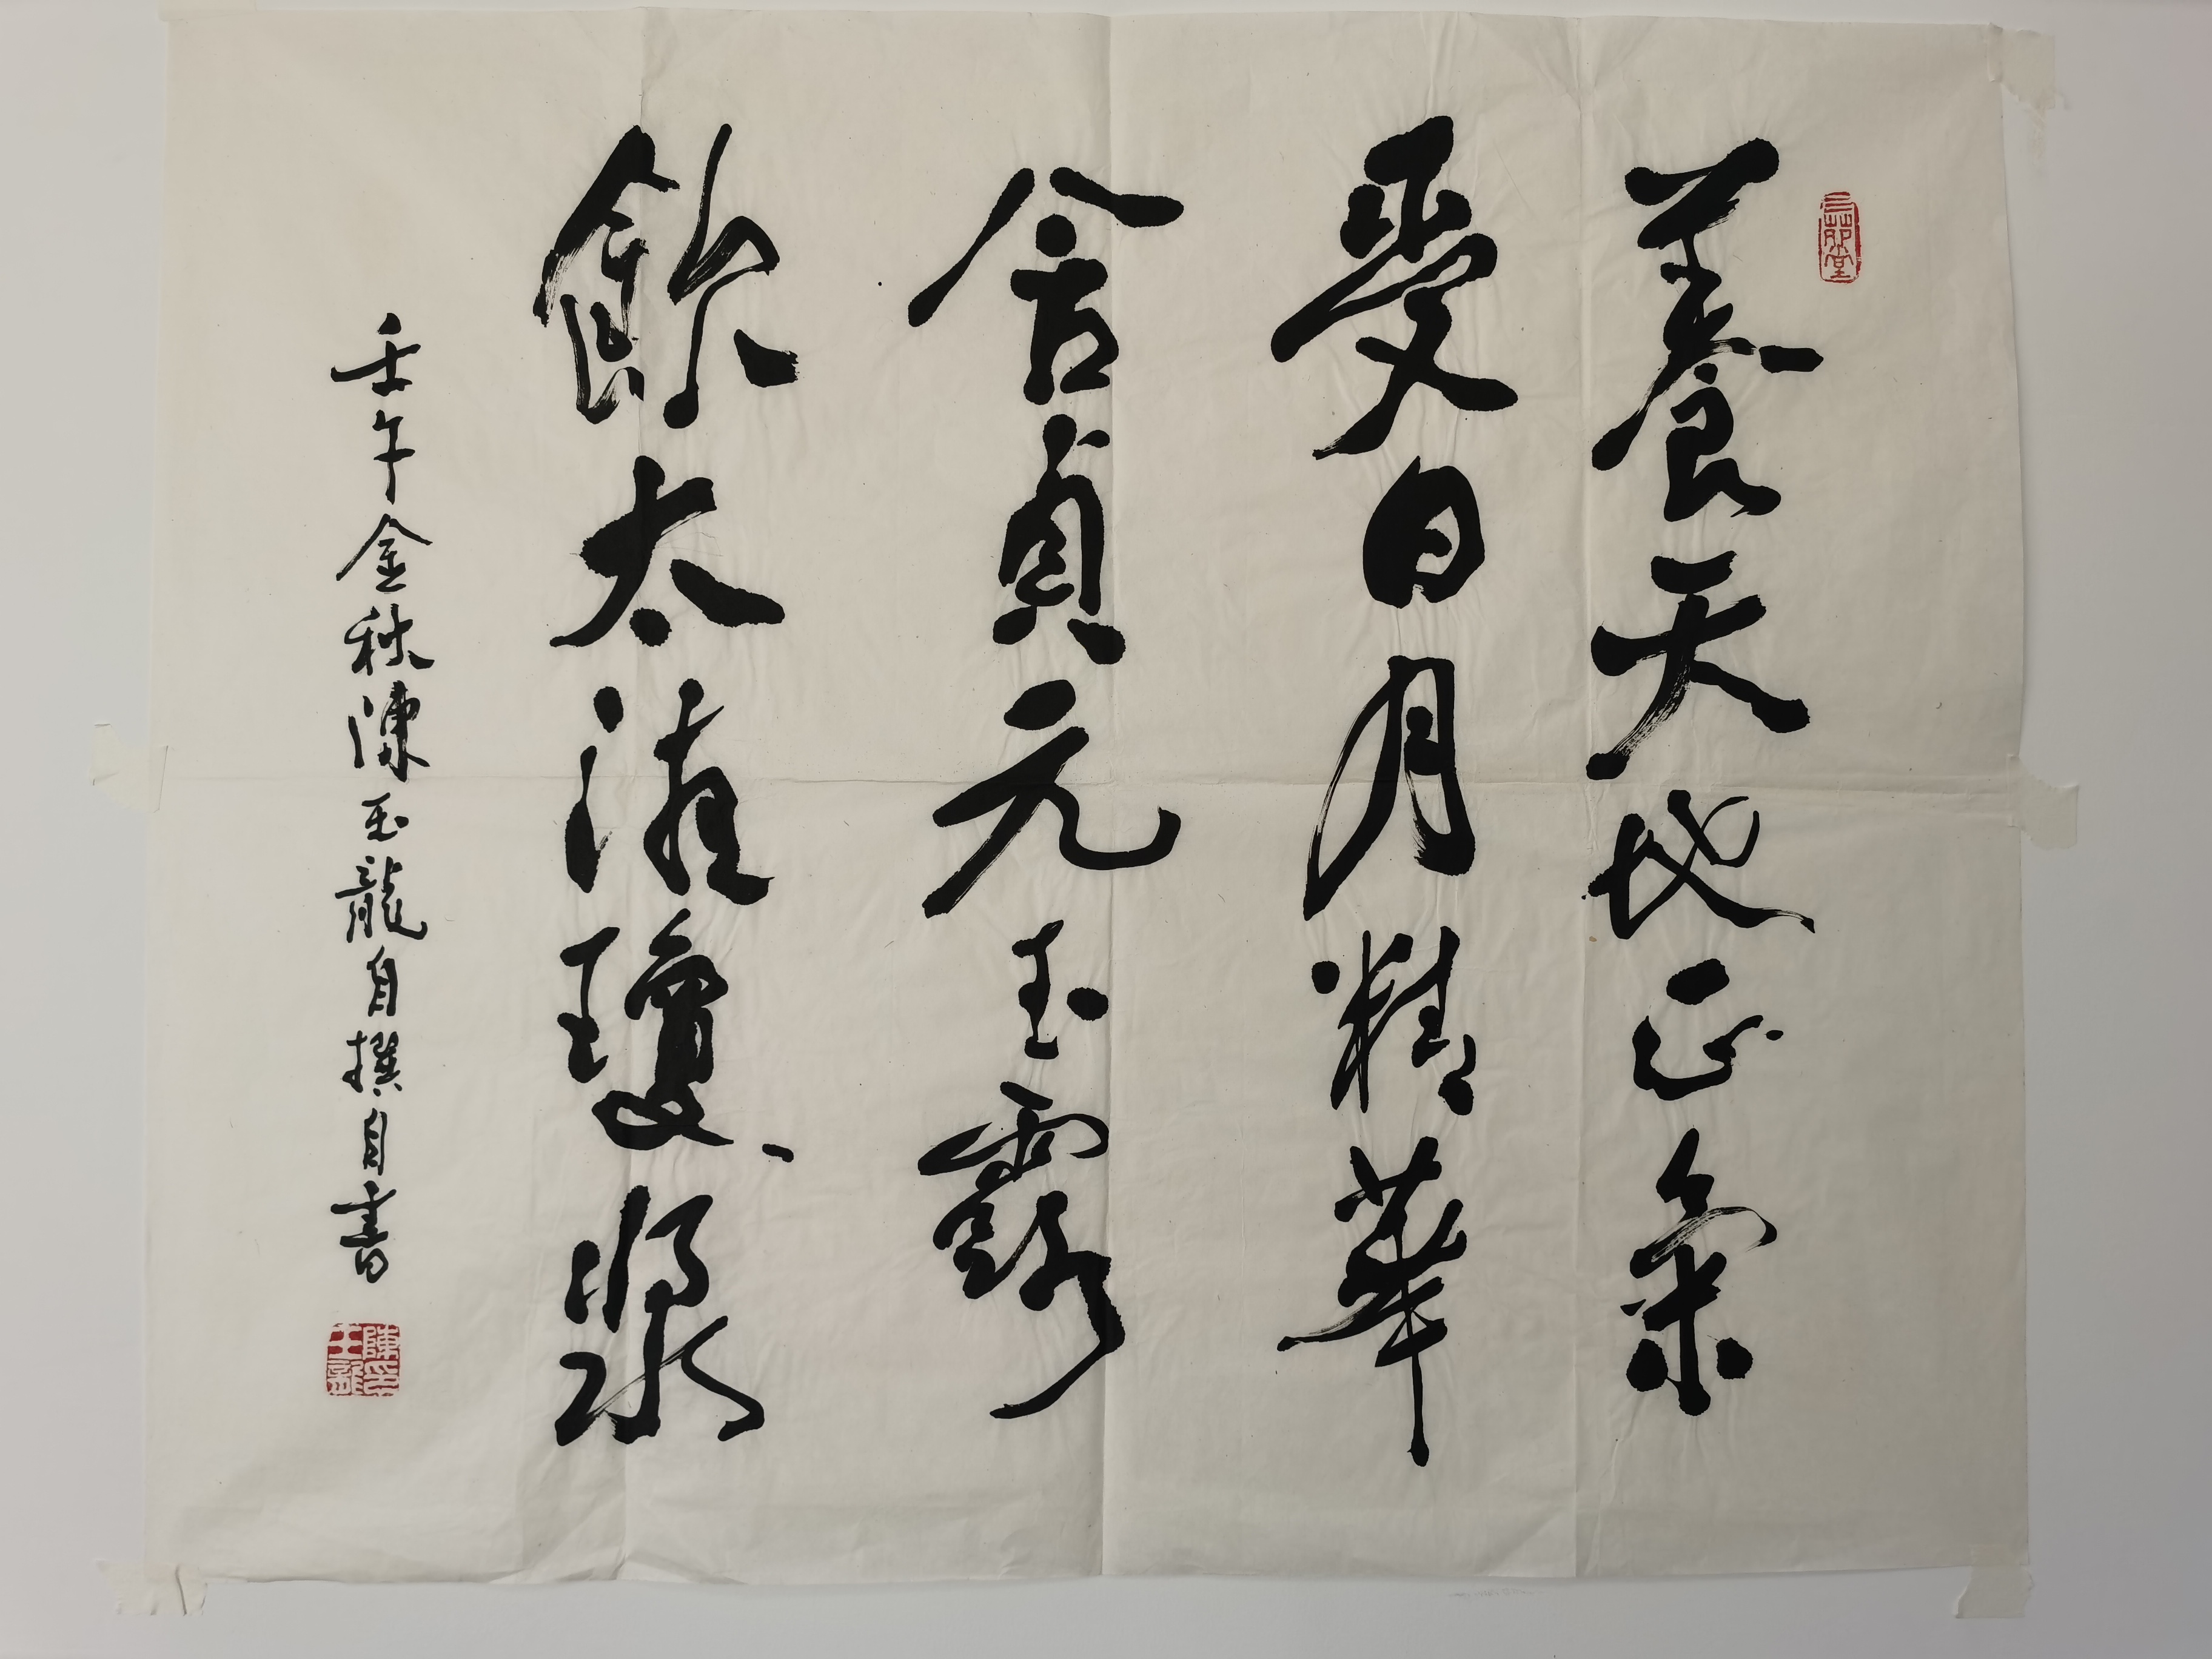 養天地正氣
受日月精華
含貞元玉露
飲太液瓊漿
壬午金秋陳玉龍自撰自書
陳玉龍印